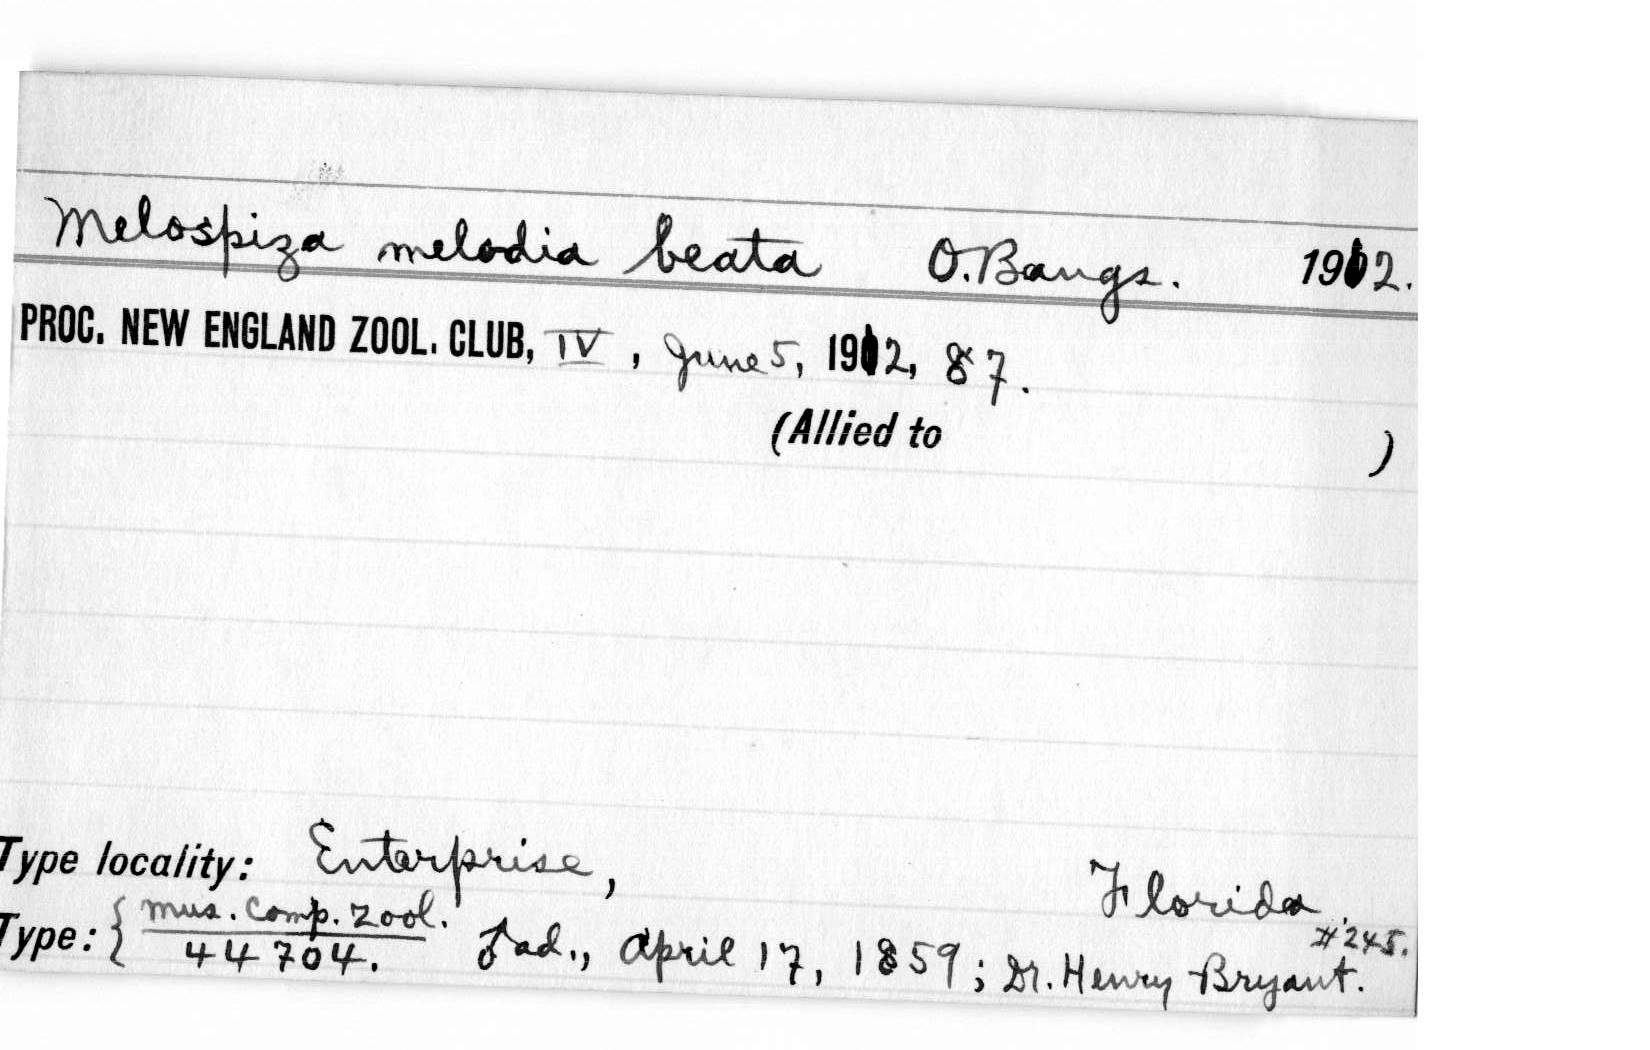 Melospiza melodia beata O. Bangs. 1912.
PROC. NEW ENGLAND ZOOL. CLUB, IV, June 5, 1912, 87.
(Allied to )
Type locality: Enterprise, Florida.
Type: { Mus. Comp. Zool. #245.
44704. ♂ ad., April 17, 1859; Dr. Henry Bryant.